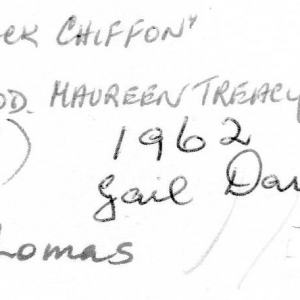 CK CHIFFON"
OD. MAUREEN TREACY
1962
Gail Dav
homas